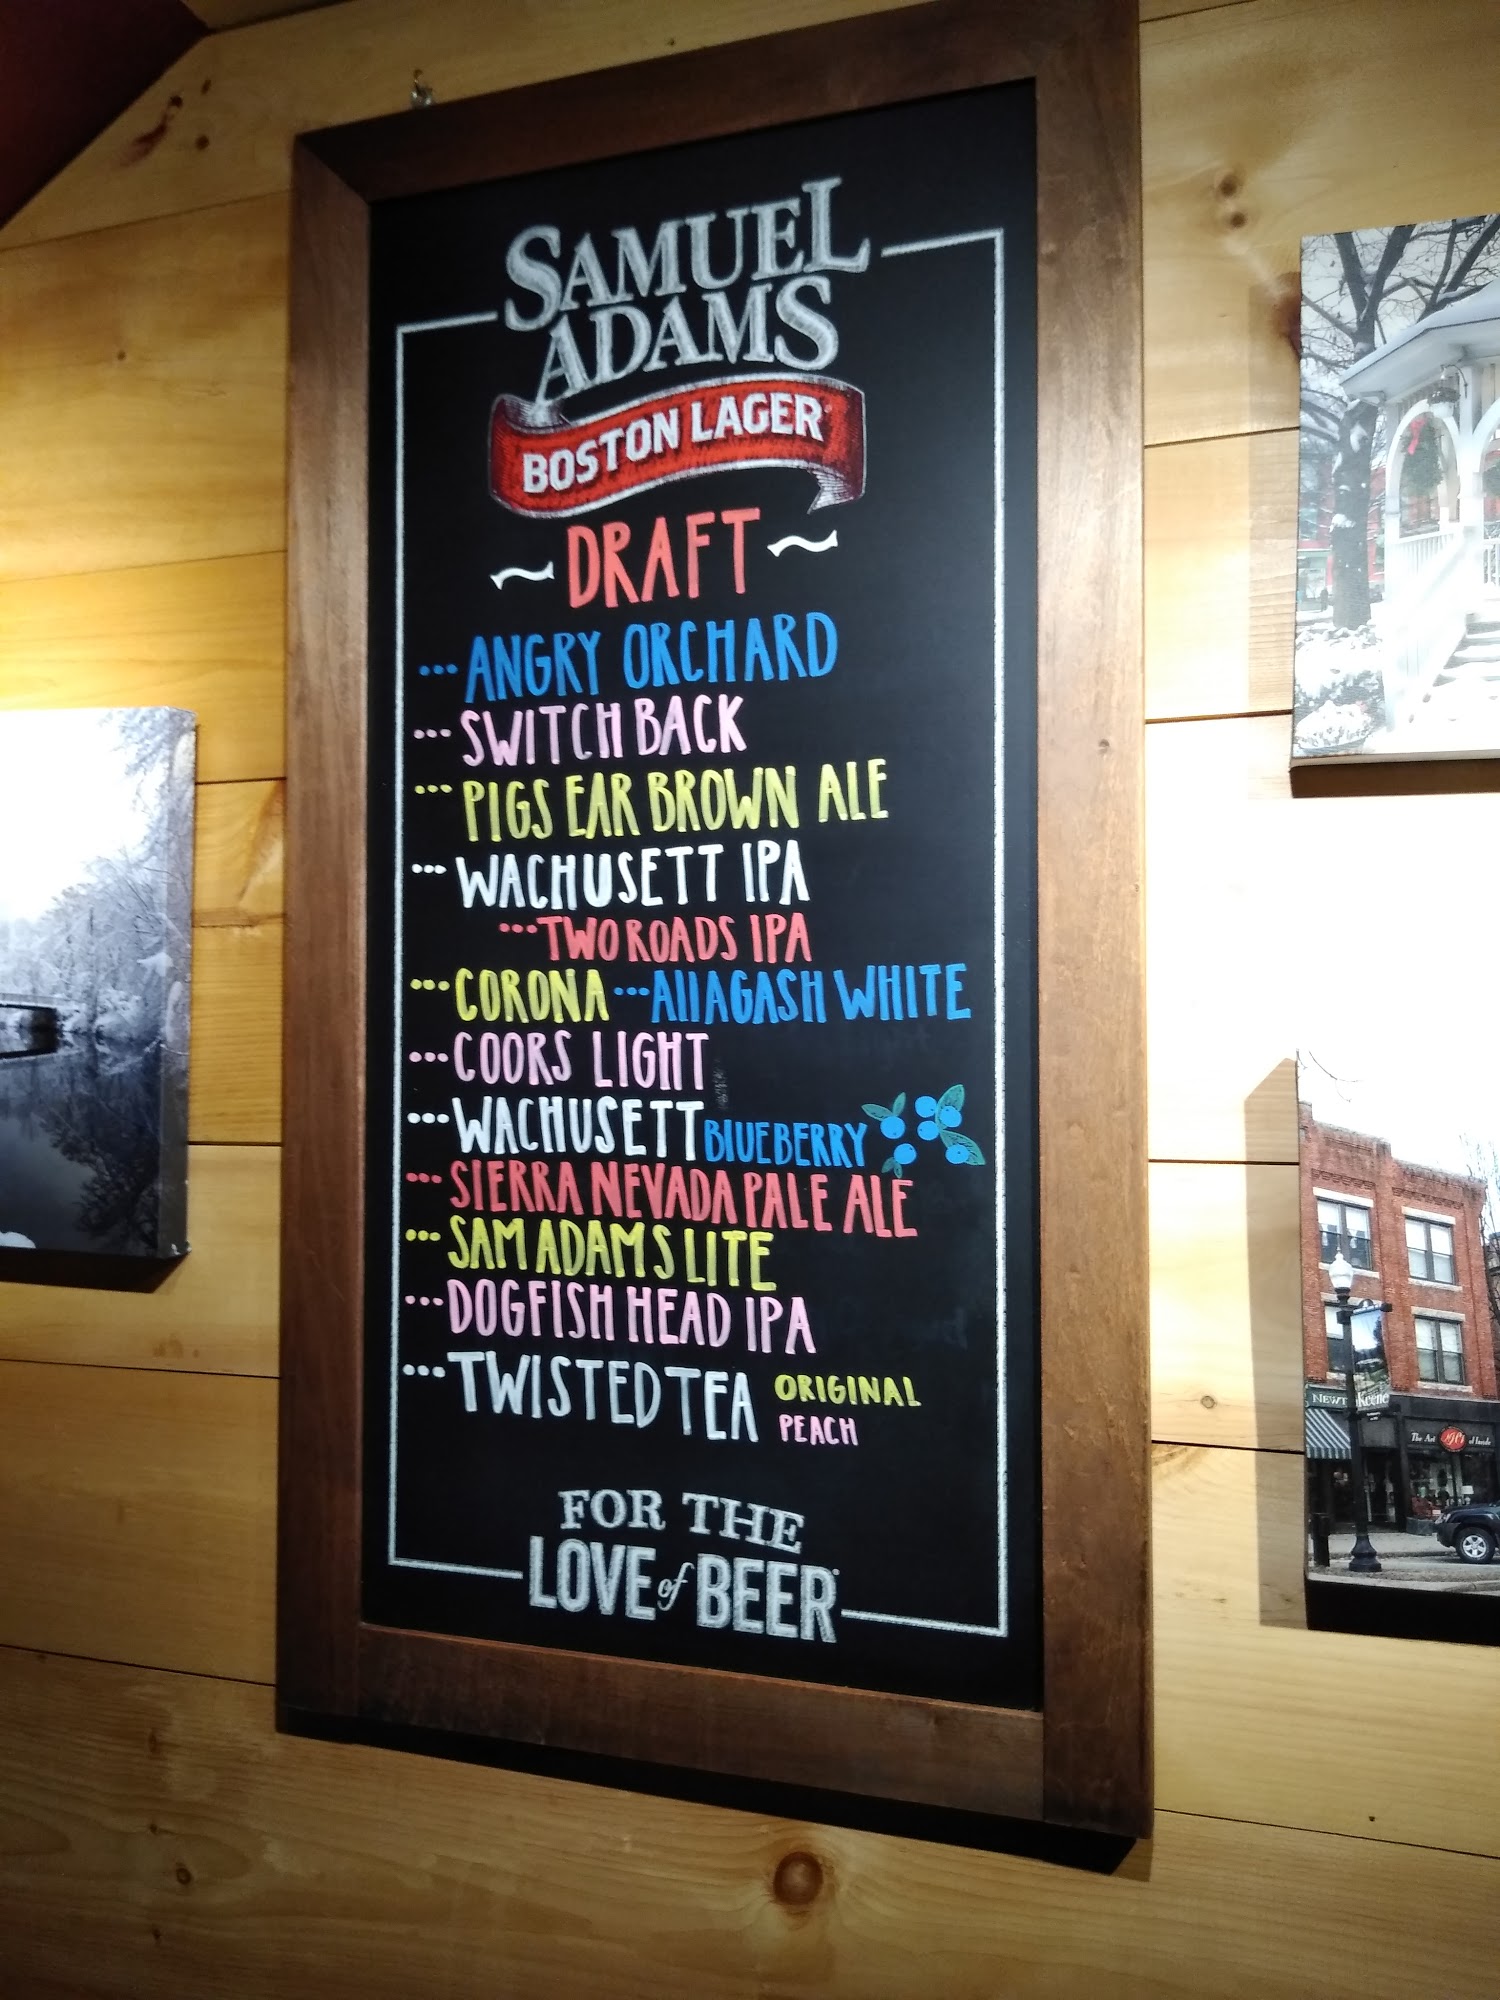 SAMUEL
ADAMS
BOSTON LAGER
~DRAFT~
...ANGRY ORCHARD
...SWITCH BACK
...PIGS EAR BROWN ALE
...WACHUSETT IPA
...TWO ROADS IPA
...CORONA ...AllAGASH WHITE
...COORS LIGHT
...WACHUSETT BLUEBERRY
...SIERRA NEVADA PALE ALE
...SAM ADAMS LITE
...DOGFISH HEAD IPA
...TWISTED TEA ORIGINAL
PEACH
FOR THE
LOVE of BEER
Keene
The Art